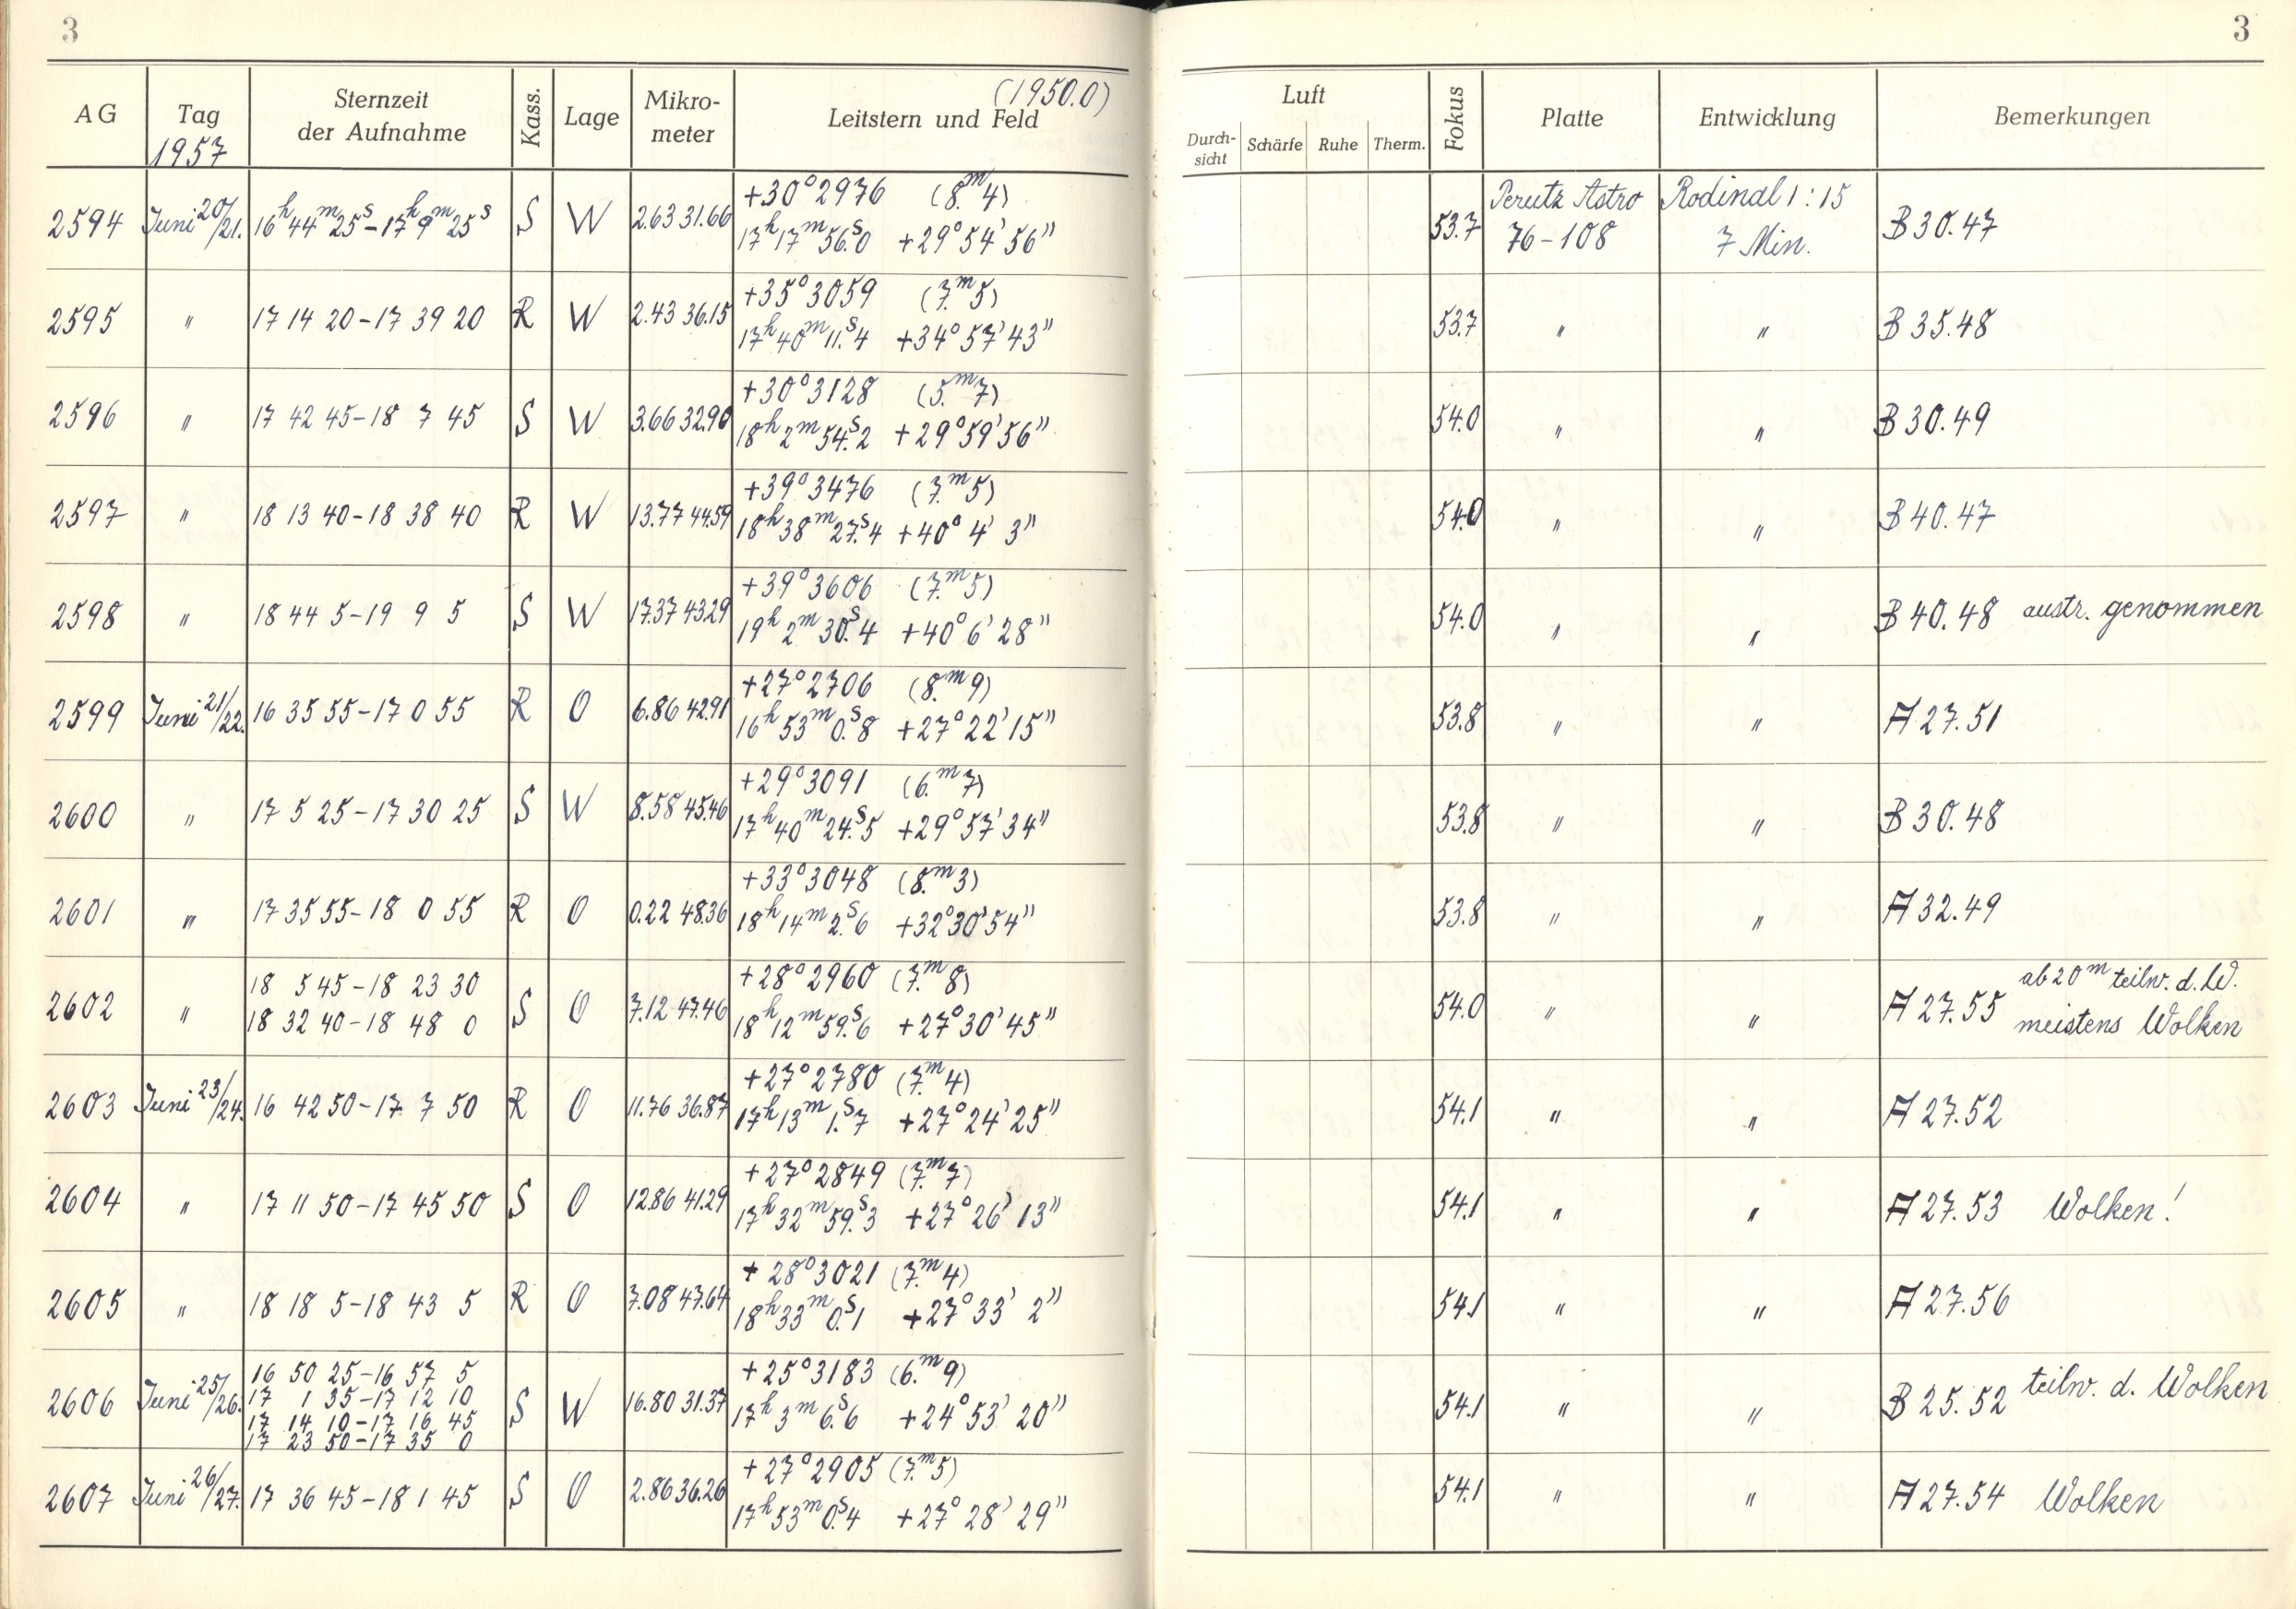 3
3
AG Tag 1957 Sternzeit der Aufnahme Kass. Lage Mikro-meter Leitstern und Feld (1950.0) Luft Durch-sicht Schärfe Ruhe Therm. Fokus Platte Entwicklung Bemerkungen
2594 Juni 20/21. 16h 44m 25s - 17h 9m 25s S W 2.63 31.66 +30° 2976 (8.m4) 53.7 Perutz Astro Rodinal 1:15 B 30.47
17h 17m 56.s0 +29° 54' 56" 76-108 7 Min.
2595 " 17 14 20 - 17 39 20 R W 2.43 36.15 +35° 3059 (7.m5) 53.7 " " B 35.48
17h 40m 11.s4 +34° 57' 43"
2596 " 17 42 45 - 18 7 45 S W 3.66 32.90 +30° 3128 (5.m7) 54.0 " " B 30.49
18h 2m 54.s2 +29° 59' 56"
2597 " 18 13 40 - 18 38 40 R W 13.77 44.59 +39° 3476 (7.m5) 54.0 " " B 40.47
18h 38m 27.s4 +40° 4' 3"
2598 " 18 44 5 - 19 9 5 S W 17.37 43.29 +39° 3606 (7.m5) 54.0 " " B 40.48 austr. genommen
19h 2m 30.s4 +40° 6' 28"
2599 Juni 21/22. 16 35 55 - 17 0 55 R O 6.86 42.91 +27° 2706 (8.m9) 53.8 " " A 27.51
16h 53m 0.s8 +27° 22' 15"
2600 " 17 5 25 - 17 30 25 S W 8.58 45.46 +29° 3091 (6.m7) 53.8 " " B 30.48
17h 40m 24.s5 +29° 57' 34"
2601 " 17 35 55 - 18 0 55 R O 0.22 48.36 +33° 3048 (8.m3) 53.8 " " A 32.49
18h 14m 2.s6 +32° 30' 54"
2602 " 18 5 45 - 18 23 30 S O 7.12 47.46 +28° 2960 (7.m8) 54.0 " " A 27.55 ab 20m teilw. d. W.
18 32 40 - 18 48 0 18h 12m 59.s6 +27° 30' 45" meistens Wolken
2603 Juni 23/24. 16 42 50 - 17 7 50 R O 11.76 36.87 +27° 2780 (7.m4) 54.1 " " A 27.52
17h 13m 1.s7 +27° 24' 25"
2604 " 17 11 50 - 17 45 50 S O 12.86 41.29 +27° 2849 (7.m7) 54.1 " " A 27.53 Wolken!
17h 32m 59.s3 +27° 26' 13"
2605 " 18 18 5 - 18 43 5 R O 7.08 47.64 +28° 3021 (7.m4) 54.1 " " A 27.56
18h 33m 0.s1 +27° 33' 2"
2606 Juni 25/26. 16 50 25 - 16 57 5 S W 16.80 31.37 +25° 3183 (6.m9) 54.1 " " B 25.52 teilw. d. Wolken
17 1 35 - 17 12 10 17h 3m 6.s6 +24° 53' 20"
17 14 10 - 17 16 45
17 23 50 - 17 35 0
2607 Juni 26/27. 17 36 45 - 18 1 45 S O 2.86 36.26 +27° 2905 (7.m5) 54.1 " " A 27.54 Wolken
17h 53m 0.s4 +27° 28' 29"